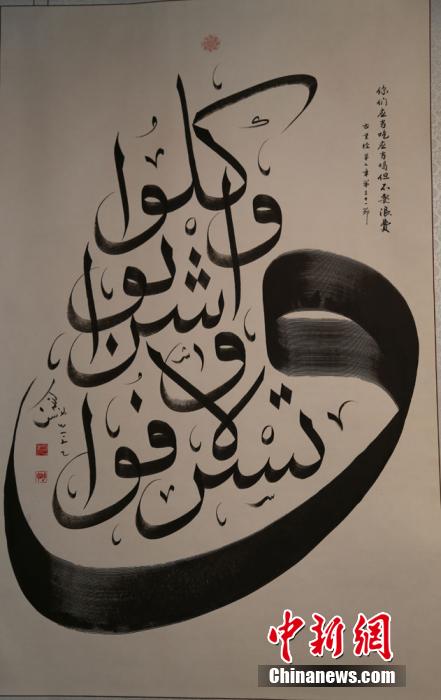 وكلوا
واشربوا
ولا
تسرفوا
你们应当吃应当喝但不要浪费
古兰经第七章第三十一节
中新网
Chinanews.com